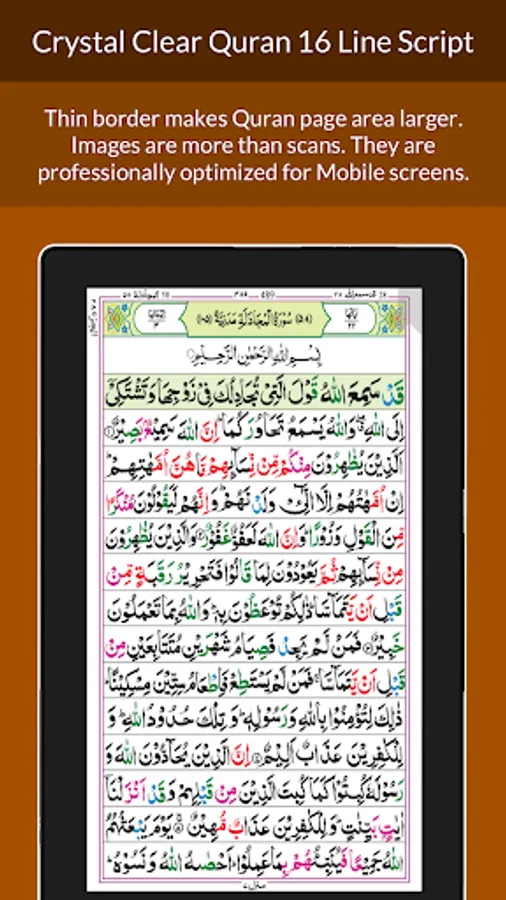 Crystal Clear Quran 16 Line Script
Thin border makes Quran page area larger.
Images are more than scans. They are
professionally optimized for Mobile screens.
489
سُوْرَةُ الْمُجَادَلَةِ مَدَنِيَّةٌ
بِسْمِ اللّٰهِ الرَّحْمٰنِ الرَّحِيْمِ
قَدْ سَمِعَ اللّٰهُ قَوْلَ الَّتِيْ تُجَادِلُكَ فِيْ زَوْجِهَا وَتَشْتَكِيْٓ
اِلَى اللّٰهِ وَاللّٰهُ يَسْمَعُ تَحَاوُرَكُمَا اِنَّ اللّٰهَ سَمِيْعٌۢ بَصِيْرٌ
اَلَّذِيْنَ يُظٰهِرُوْنَ مِنْكُمْ مِّنْ نِّسَآئِهِمْ مَّا هُنَّ اُمَّهٰتِهِمْ
اِنْ اُمَّهٰتُهُمْ اِلَّا الّٰٓئِيْ وَلَدْنَهُمْ وَاِنَّهُمْ لَيَقُوْلُوْنَ مُنْكَرًا
مِّنَ الْقَوْلِ وَزُوْرًا وَاِنَّ اللّٰهَ لَعَفُوٌّ غَفُوْرٌ وَالَّذِيْنَ يُظٰهِرُوْنَ
مِنْ نِّسَآئِهِمْ ثُمَّ يَعُوْدُوْنَ لِمَا قَالُوْا فَتَحْرِيْرُ رَقَبَةٍ مِّنْ
قَبْلِ اَنْ يَّتَمَآسَّا ذٰلِكُمْ تُوْعَظُوْنَ بِهٖ وَاللّٰهُ بِمَا تَعْمَلُوْنَ
خَبِيْرٌ فَمَنْ لَّمْ يَجِدْ فَصِيَامُ شَهْرَيْنِ مُتَتَابِعَيْنِ مِنْ
قَبْلِ اَنْ يَّتَمَآسَّا فَمَنْ لَّمْ يَسْتَطِعْ فَاِطْعَامُ سِتِّيْنَ مِسْكِيْنًا
ذٰلِكَ لِتُؤْمِنُوْا بِاللّٰهِ وَرَسُوْلِهٖ وَتِلْكَ حُدُوْدُ اللّٰهِ وَ
لِلْكٰفِرِيْنَ عَذَابٌ اَلِيْمٌ اِنَّ الَّذِيْنَ يُحَآدُّوْنَ اللّٰهَ وَ
رَسُوْلَهٗ كُبِتُوْا كَمَا كُبِتَ الَّذِيْنَ مِنْ قَبْلِهِمْ وَقَدْ اَنْزَلْنَآ
اٰيٰتٍۢ بَيِّنٰتٍ وَلِلْكٰفِرِيْنَ عَذَابٌ مُّهِيْنٌ يَوْمَ يَبْعَثُهُمُ
اللّٰهُ جَمِيْعًا فَيُنَبِّئُهُمْ بِمَا عَمِلُوْا اَحْصٰىهُ اللّٰهُ وَنَسُوْهُ